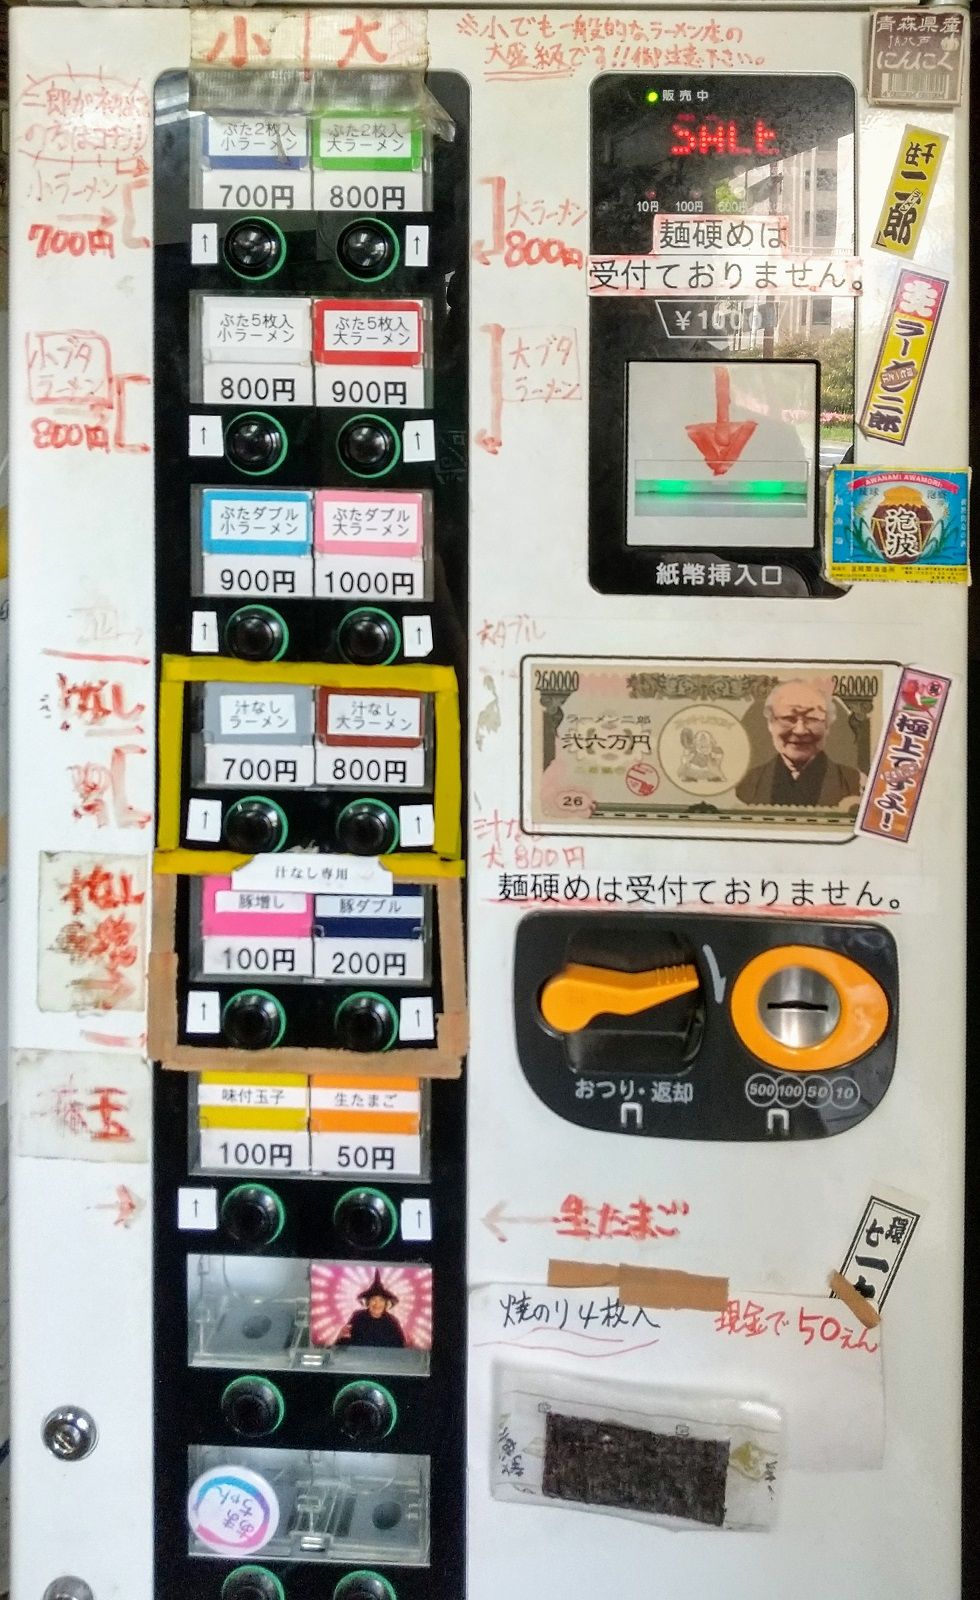 小 大
※小でも一般的なラーメン店の
大盛級です!!御注意下さい。
青森県産
JA八戸
にんにく
小ラーメン
700円
ぶた2枚入
小ラーメン
700円
ぶた2枚入
大ラーメン
800円
↑ ↑
大ラーメン
800円
販売中
SALE
10円 100円 500円
麺硬めは
受付ておりません。
¥1000
紙幣挿入口
生
二郎
ラーメン二郎
小ブタ
ラーメン
800円
ぶた5枚入
小ラーメン
800円
ぶた5枚入
大ラーメン
900円
↑ ↑
大ブタ
ラーメン
AWANAMI AWAMORI
琉球 泡盛
泡波
ぶたダブル
小ラーメン
900円
ぶたダブル
大ラーメン
1000円
↑ ↑
大ダブル
汁なし
汁なし
ラーメン
700円
汁なし
大ラーメン
800円
↑ ↑
260000 260000
ラーメン二郎
弐六万円
26
祝
極上ですよ!
汁なし
大800円
麺硬めは受付ておりません。
汁なし専用
豚増し
100円
豚ダブル
200円
↑ ↑
おつり・返却
500 100 50 10
味付玉子
100円
生たまご
50円
↑ ↑
生たまご
焼のり4枚入
現金で50えん